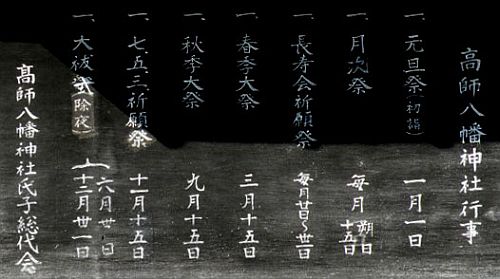 高師八幡神社行事
一、元旦祭(初詣) 一月一日
一、月次祭 毎月 朔日 十五日
一、長寿会祈願祭 毎月廿日〜卅日
一、春季大祭 三月十五日
一、秋季大祭 九月十五日
一、七、五、三祈願祭 十一月十五日
一、大祓式(除夜) 六月卅日 十二月卅一日
髙師八幡神社氏子総代会